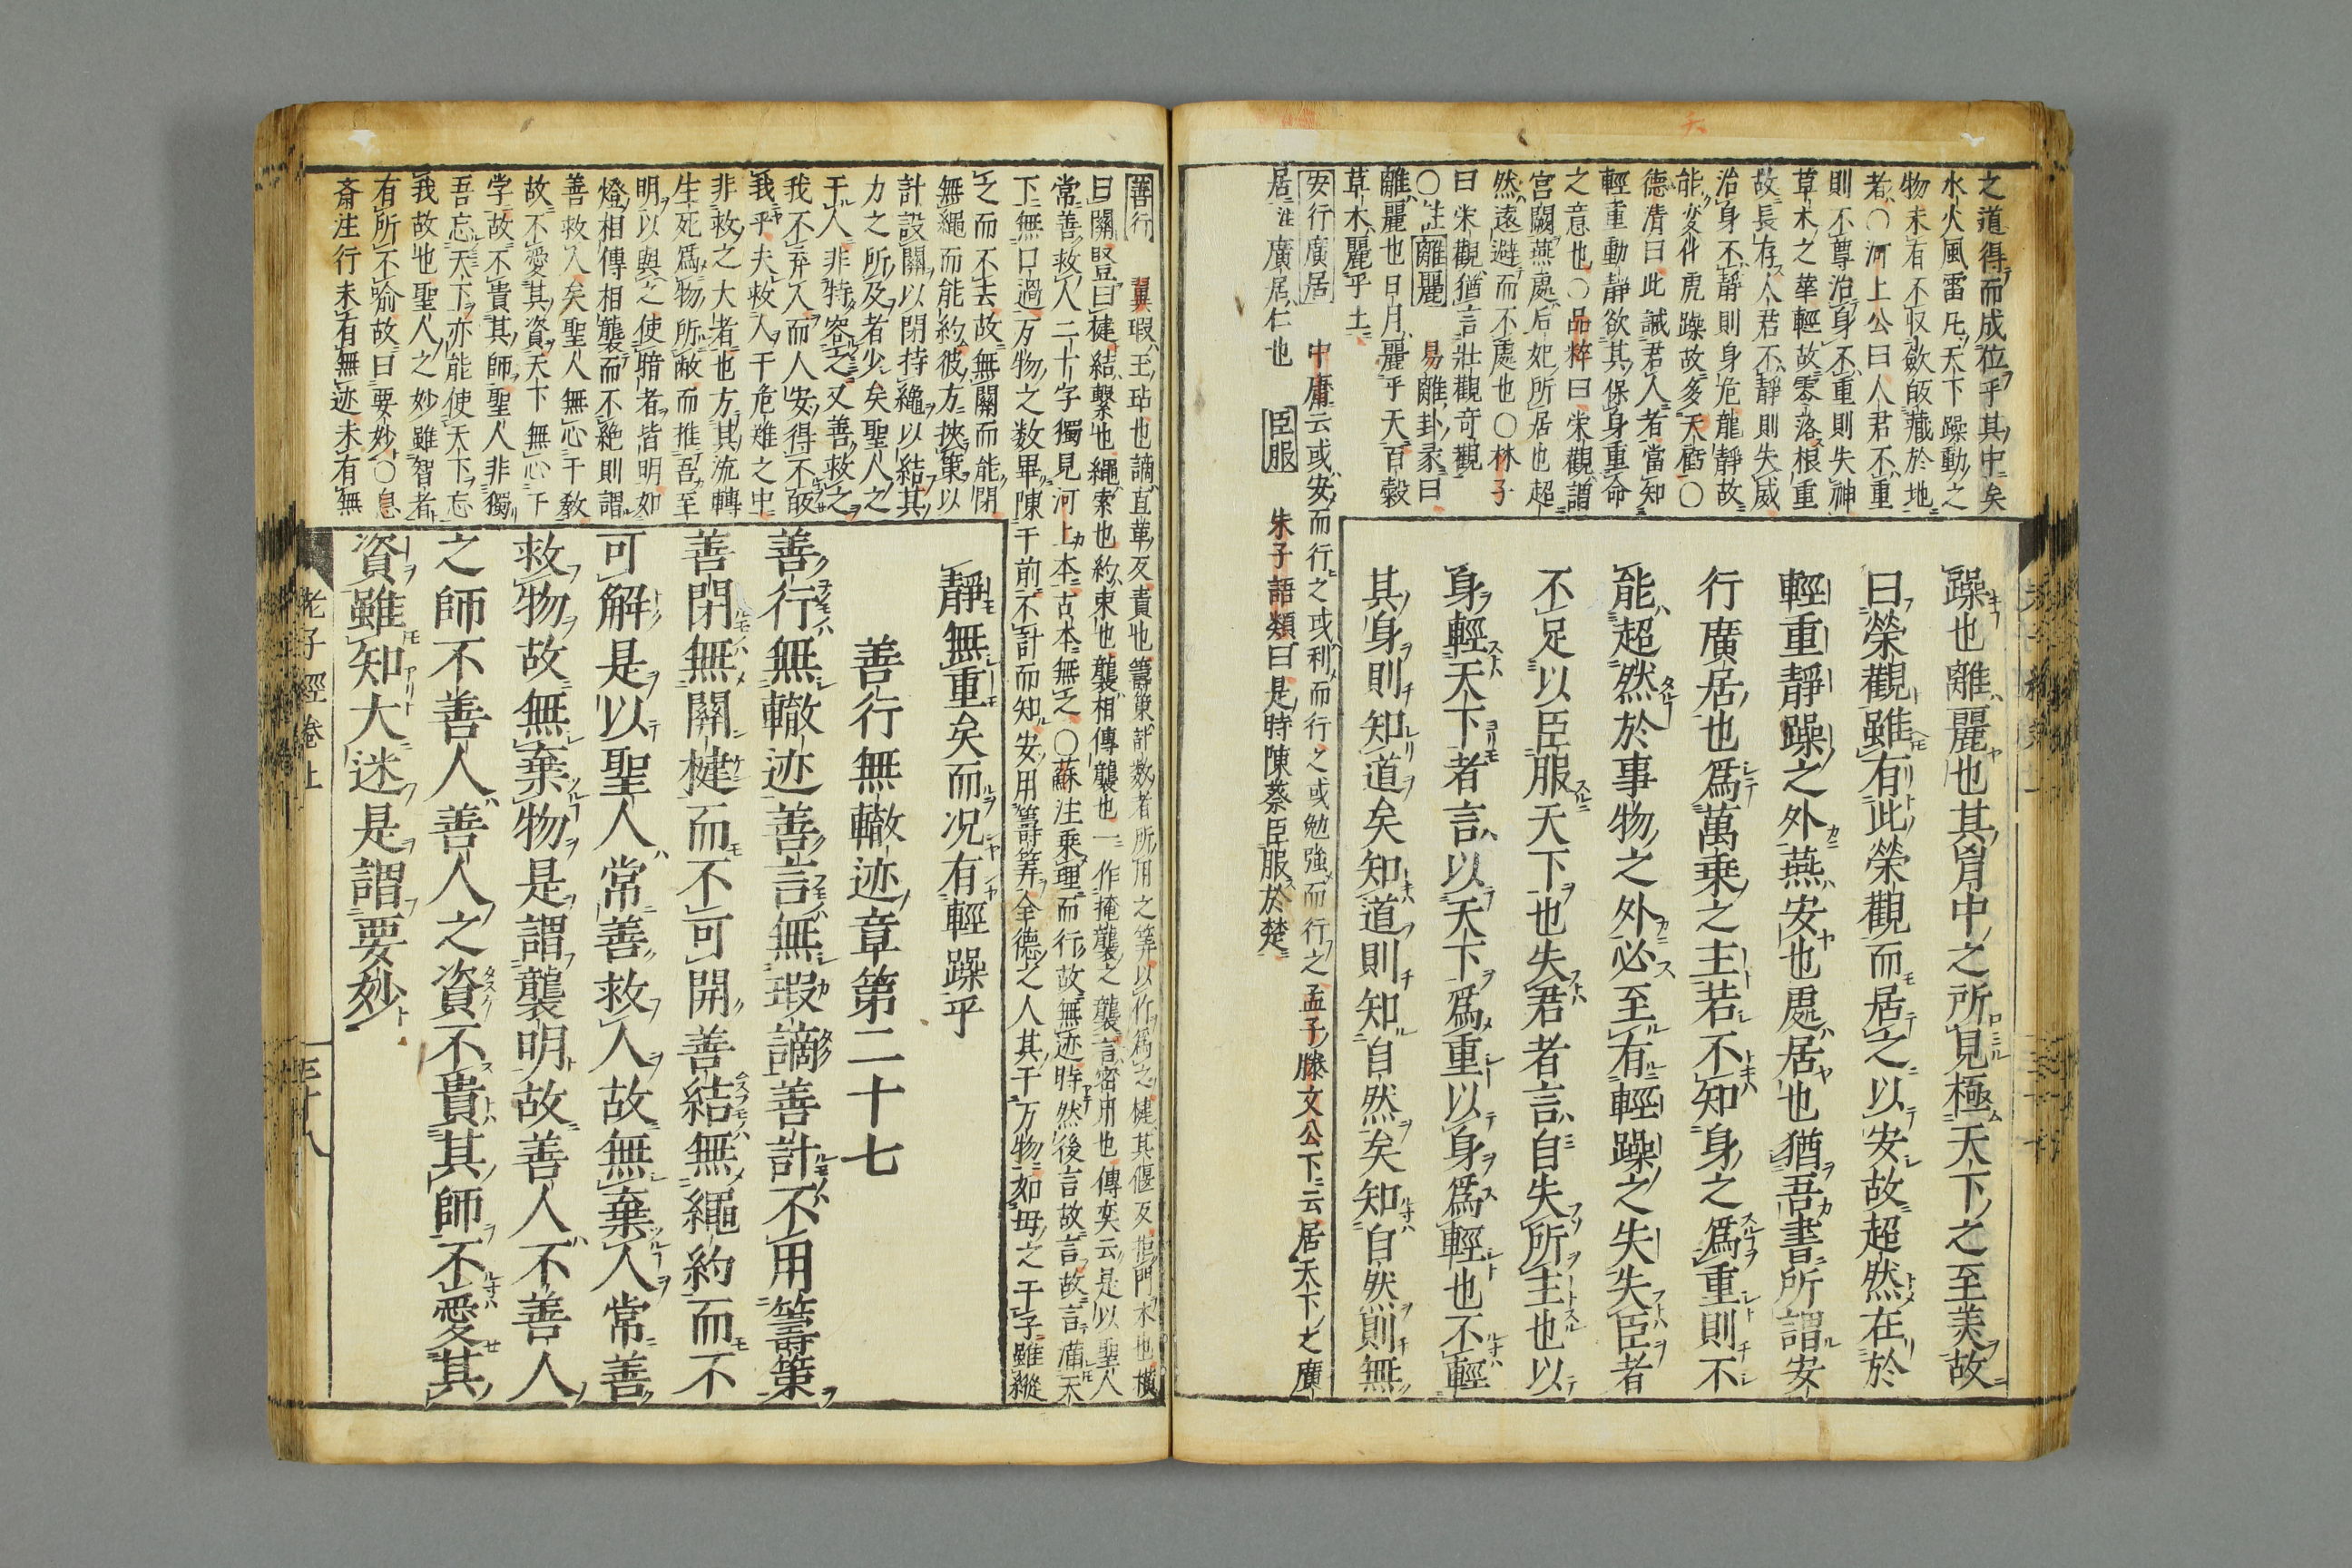 之道得而成位乎其中矣
水火風雷凡天下躁動之
物未有不収斂皈藏於地
者○河上公曰人君不重
則不尊治身不重則失神
草木之華輕故零落根重
故長存人君不靜則失威
治身不靜則身危龍靜故
能変化虎躁故多夭虧○
德清曰此誡君人者當知
輕重動靜欲其保身重命
之意也○品粹曰栄觀謂
宮闕燕處后妃所居也超
然遠避而不處也○林子
曰栄觀猶言壯觀奇觀
○注離麗 易離卦彖曰
離麗也日月麗乎天百穀
草木麗乎土
安行廣居 中庸云或安而行之或利而行之或勉強而行之孟子滕文公下云居天下之廣
居注廣居仁也 臣服 朱子語類曰是時陳蔡臣服於楚
躁也離麗也其胷中之所見極天下之至美故
曰榮觀雖有此榮觀而居之以安故超然在於
輕重靜躁之外燕安也處居也猶吾書所謂安
行廣居也爲萬乗之主若不知身之爲重則不
能超然於事物之外必至有輕躁之失失臣者
不足以臣服天下也失君者言自失所主也以
身輕天下者言以天下爲重以身爲輕也不輕
其身則知道矣知道則知自然矣知自然則無
善行 翼瑕玉玷也謫直革反責也籌策計数者所用之筭以竹爲之楗其偃反拒門木也横
曰關竪曰楗結繋也繩索也約束也襲相傳襲也一作掩襲之襲言密用也傳奕云是以聖人
常善救人二十字獨見河上本古本無之○蘇注乗理而行故無迹時然後言故言故言滿天
下無口過万物之数畢陳于前不計而知安用籌筭全德之人其于万物如母之于子雖縱
之而不去故無關而能閉
無繩而能約彼方挾策以
計設關以閉持繩以結其
力之所及者少矣聖人之
于人非特容之又善救之
我不弃人而人安得不皈
我乎夫救人于危难之中
非救之大者也方其流轉
生死爲物所蔽而推吾至
明以與之使暗者皆明如
燈相傳相襲而不絶則謂
善救人矣聖人無心于教
故不愛其資天下無心于
学故不貴其師聖人非獨
吾忘天下亦能使天下忘
我故也聖人之妙雖智者
有所不喻故曰要妙○息
斎注行未有無迹未有無
靜無重矣而况有輕躁乎
善行無轍迹章第二十七
善行無轍迹善言無瑕謫善計不用籌策
善閉無關楗而不可開善結無繩約而不
可解是以聖人常善救人故無棄人常善
救物故無棄物是謂襲明故善人不善人
之師不善人善人之資不貴其師不愛其
資雖知大迷是謂要妙
老子經卷上
三十八